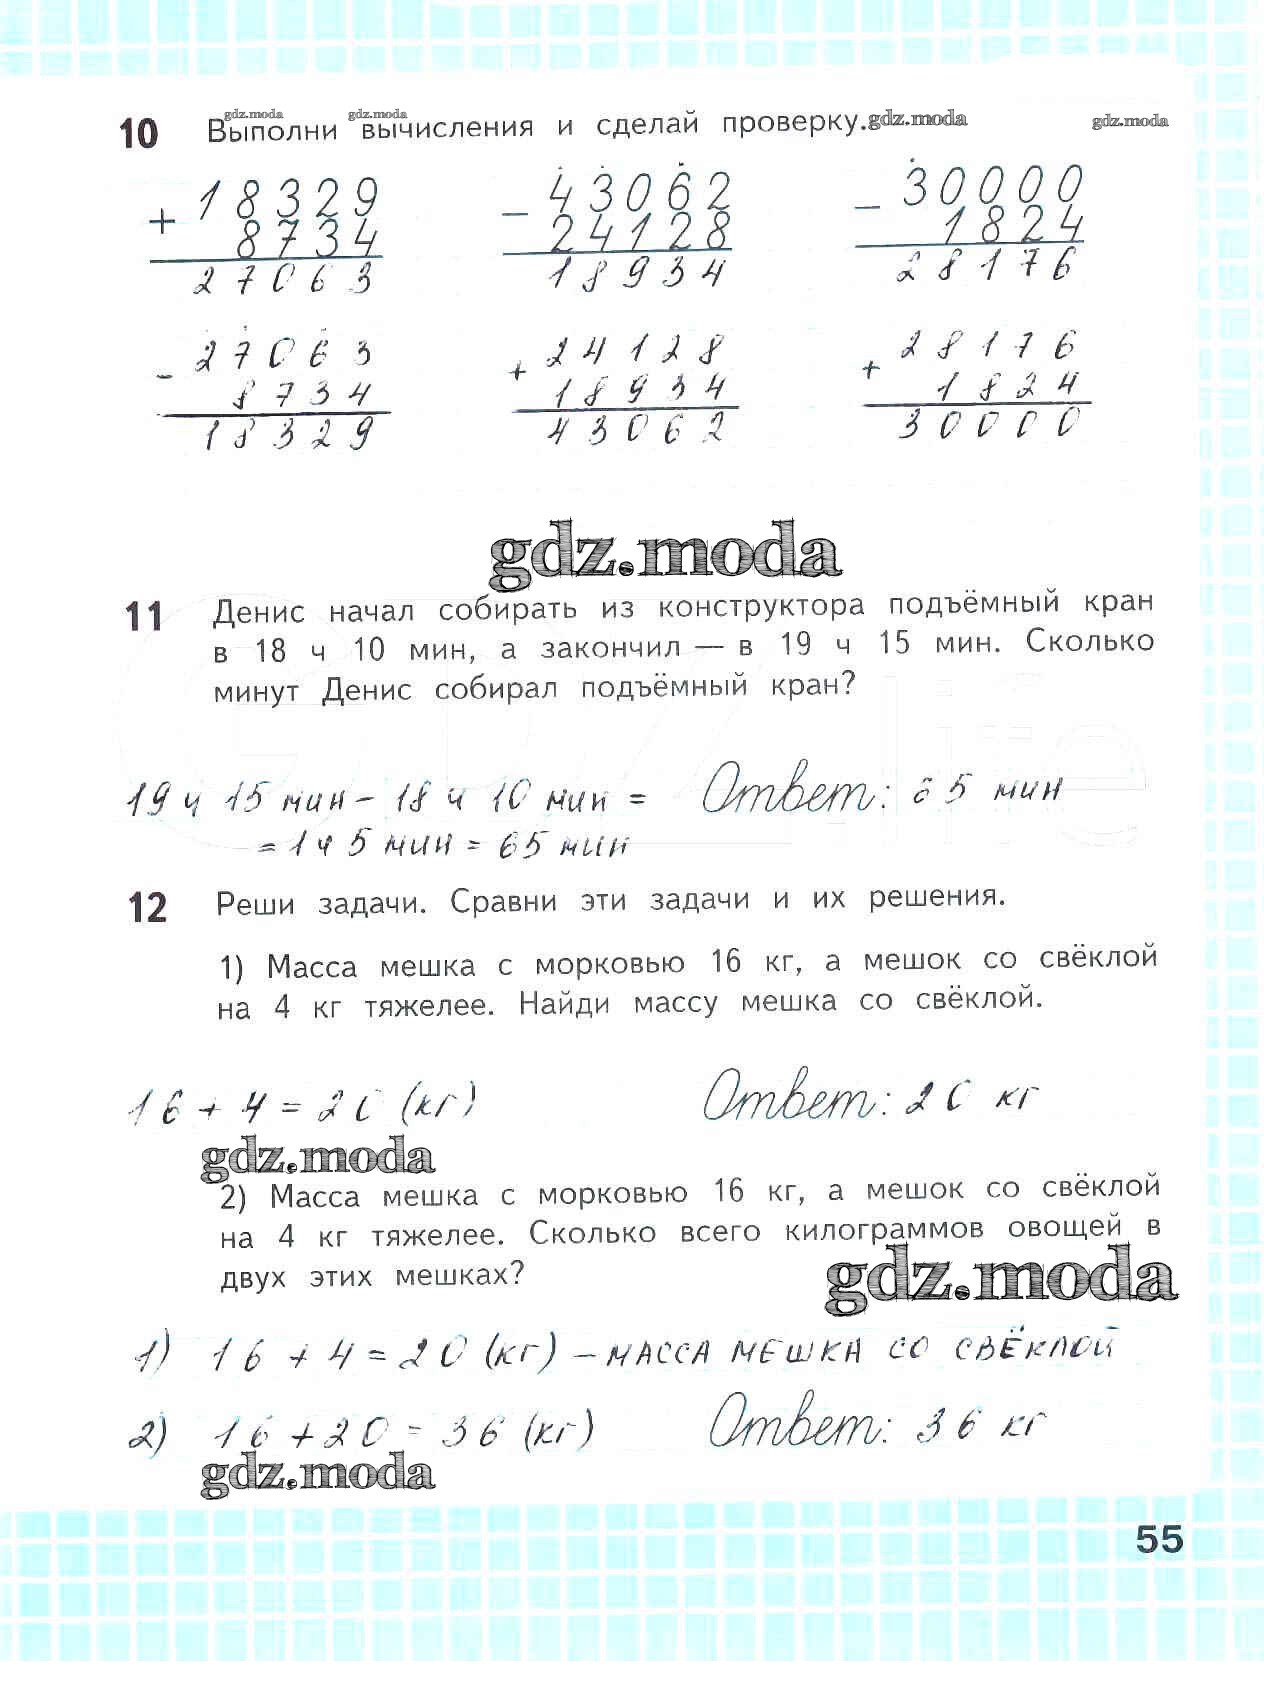 gdz.moda gdz.moda gdz.moda gdz.moda
10 Выполни вычисления и сделай проверку.
+ 18329 - 43062 - 30000
8734 24128 1824
27063 18934 28176
- 27063 + 24128 + 28176
8734 18934 1824
18329 43062 30000
gdz.moda
11 Денис начал собирать из конструктора подъёмный кран
в 18 ч 10 мин, а закончил — в 19 ч 15 мин. Сколько
минут Денис собирал подъёмный кран?
19 ч 15 мин - 18 ч 10 мин = Ответ: 65 мин
= 1 ч 5 мин = 65 мин
12 Реши задачи. Сравни эти задачи и их решения.
1) Масса мешка с морковью 16 кг, а мешок со свёклой
на 4 кг тяжелее. Найди массу мешка со свёклой.
16 + 4 = 20 (кг) Ответ: 20 кг
gdz.moda
2) Масса мешка с морковью 16 кг, а мешок со свёклой
на 4 кг тяжелее. Сколько всего килограммов овощей в
двух этих мешках?
gdz.moda
1) 16 + 4 = 20 (кг) – масса мешка со свёклой
2) 16 + 20 = 36 (кг) Ответ: 36 кг
gdz.moda
55